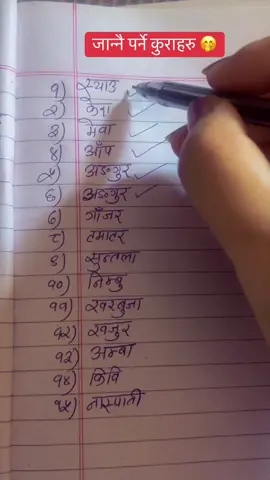 जान्नै पर्ने कुराहरु 🤭
१) स्याउ
२) केरा ✓
३) मेवा ✓
४) आँप ✓
५) अङगुर ✓
६) अङगुर ✓
७) गाँजर
८) टमाटर
९) सुन्तला
१०) निम्बु
११) खरबुजा
१२) खजुर
१३) अम्बा
१४) किवि
१५) नास्पाती